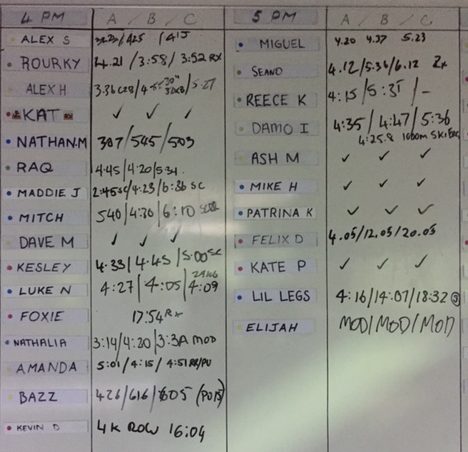 4 PM A / B / C
ALEX S
ROURKY 4.21 / 3:58 / 3:52 RX
ALEX H
KAT ✓ ✓ ✓
NATHAN.M 307/545/503
RAQ 4:45/4:20/5:34.
MADDIE J 2:45SC/4:23/6:36 SC
MITCH 540/4:30/6:10
DAVE M ✓ ✓ ✓
KESLEY 4.33/4.45/5:00SC
LUKE N 4:27/4:05/4:09
FOXIE 17:54 RX
NATHALIA 3:14/4:20/3:3A MOD
AMANDA 5:01/4:15/4:51
BAZZ 426/616/605
KEVIN D 4K ROW 16:04
5 PM A / B / C
MIGUEL 4.20 4.37 5.23
SEANO 4.12/5:36/6.12
REECE K 4:15/5:35/-
DAMO I 4:35/4:47/5:36
4:25.8 1000m SKI ERG
ASH M ✓ ✓ ✓
MIKE H ✓ ✓ ✓
PATRINA K ✓ ✓ ✓
FELIX D 4.05/12.05/20.05
KATE P ✓ ✓ ✓
LIL LEGS 4:16/14:07/18:32
ELIJAH MOD/MOD/MOD